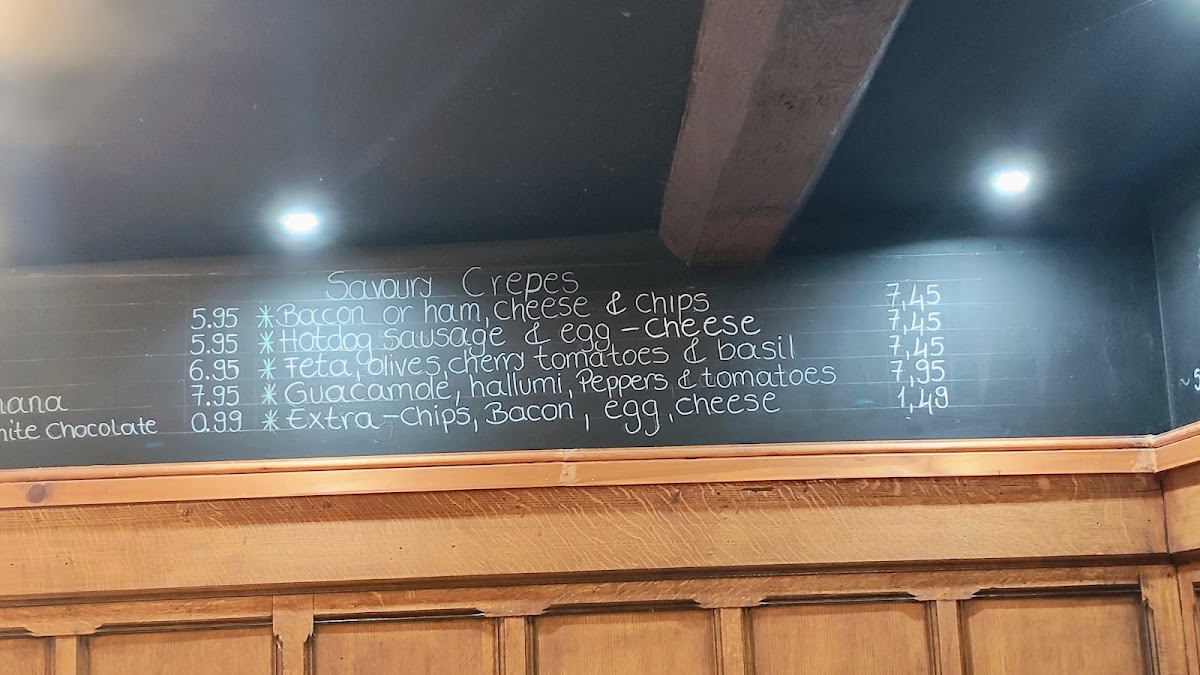 Savoury Crepes
5.95 * Bacon or ham, cheese & chips 7,45
5.95 * Hotdog sausage & egg - cheese 7,45
6.95 * Feta, olives, cherry tomatoes & basil 7,45
7.95 * Guacamole, hallumi, Peppers & tomatoes 7,95
0.99 * Extra - chips, Bacon, egg, cheese 1,49
Chocolate